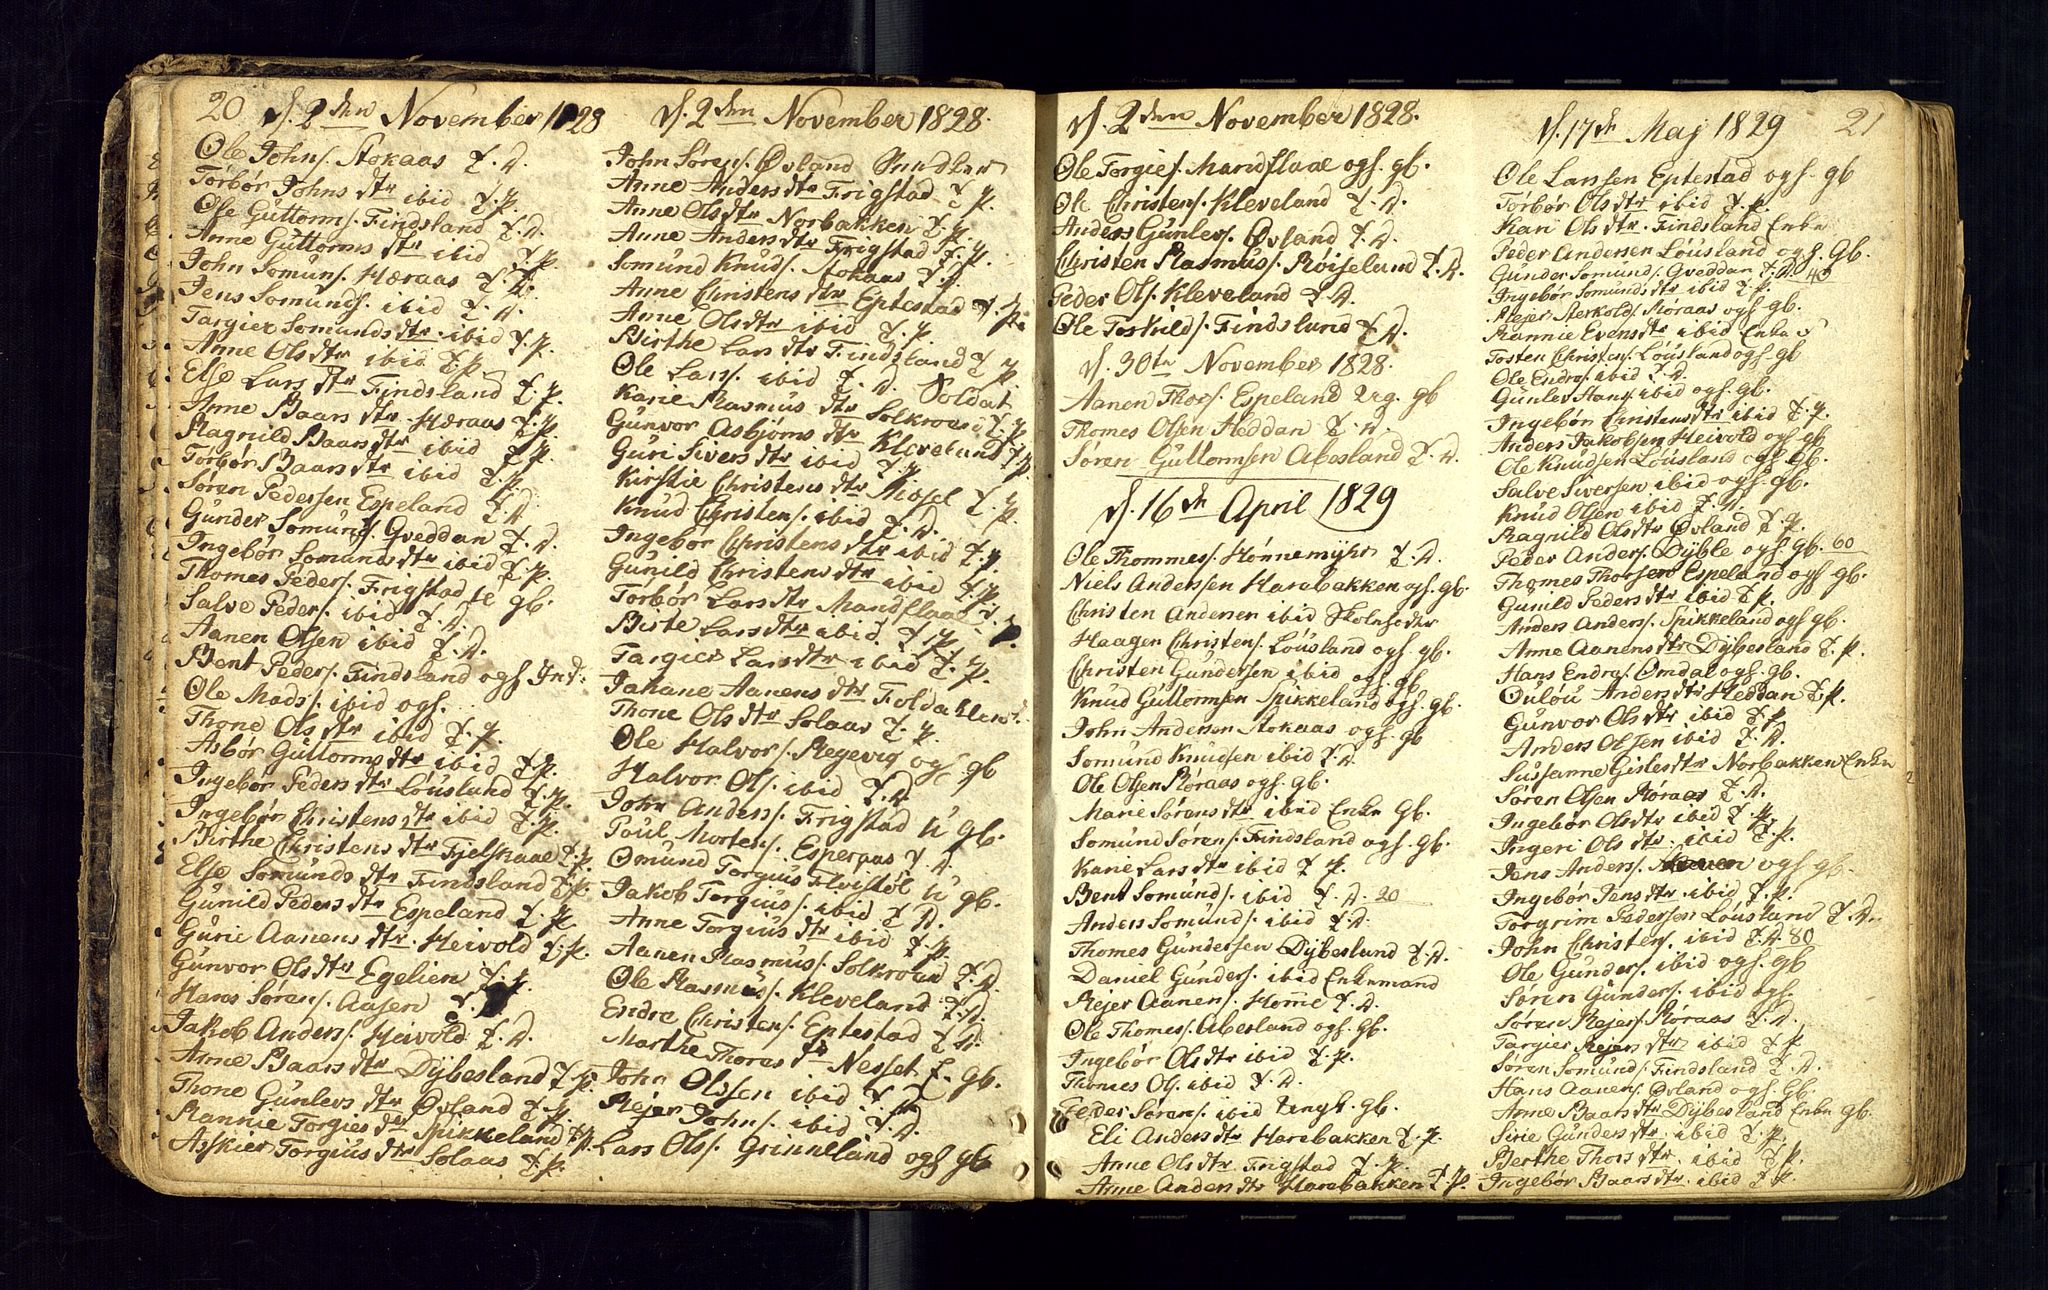 20 d. 2den November 1828
Ole Johns. Stokaas T. D.
Torbør Johnsdtr ibid T. p.
Ole Guttorms. Findsland T. D.
Anne Guttormsdtr ibid T. p.
John Somuns. Hæraas T. D.
Jens Somunds. ibid T. D.
Targier Somundsdtr. ibid T. p.
Anne Olsdtr ibid T. p.
Else Larsdtr Findsland T. p.
Anne Baarsdtr. Hæraas T. p.
Ragnild Baarsdtr ibid T. p.
Torbør Baarsdtr ibid T. p.
Søren Pedersen Espeland T. D.
Gunder Somuns. Qveddan T. D.
Ingebør Somundsdtr ibid T. p.
Thomes Peders. Frigstad gb.
Salve Peders. ibid T. D.
Aanen Olsen ibid T. D.
Bent Peders. Findsland ogs
Ole Mads. ibid ogs.
Thone Olsdtr ibid T. p.
Asbør Guttormsdtr ibid T. p.
Ingebør Pedersdtr Løusland T. p.
Ingebør Christensdtr ibid T. p.
Birthe Christensdtr Fjelskaae T. p.
Else Somundsdtr Findsland T. p.
Gunild Pedersdtr Espeland T. p.
Gurie Aanensdtr. Heivold T. p.
Gunvor Olsdtr Egelien T. p.
Hans Sørens. Aasen T.
Jakob Anders. Heivold T. D.
Anne Baarsdtr Dÿbesland T. p.
Thone Gunlevsdtr Øvland T. p.
Rannie Torgiesdtr Spikkeland T. p.
Askier Torgiusdtr Solaas T. p.
d. 2den November 1828.
John Sørens. Øvland
Anne Andersdtr Frigstad T. p.
Anne Olsdtr Norbakken T. p.
Anne Andersdtr Frigstad T. p.
Somund Knuds. Stokaas T. D.
Anne Christensdtr Eptestad T. p.
Anne Olsdtr ibid T. p.
Birthe Larsdtr Findsland T. p.
Ole Lars. ibid T. D. Soldat
Karie Rasmusdtr Solkroae T. p.
Gunvor Asbjørnsdtr Kleveland T. p.
Guri Siversdtr ibid T. p.
Kirstie Christensdtr Missel T. p.
Knud Christens. ibid T. D.
Ingebør Christensdtr ibid T. p.
Gunild Christensdtr ibid T. p.
Torbør Larsdtr Mandflaae
Birte Larsdtr ibid. T. p.
Targier Larsdtr ibid T. p.
Jahane Aanensdtr
Thone Olsdtr Solaas T. p.
Ole Halvors. Regevig ogs gb
Halvor Ols. ibid T. D.
John Anders. Frigstad U. gb.
Poul Mortens. Esperaas T. D.
Omund Torgius Flvistøl U. gb.
Jakob Torgius. ibid T. D.
Anne Torgiusdtr ibid T. p.
Aanen Rasmus. Solkroae T. D.
Ole Rasmus. Kleveland T. D.
Endre Christens. Eptestad T. D.
Marthe Thorasdtr Nesset E. gb.
John Olssen ibid T. D.
Rejer Johns. ibid T. D.
Lars Ols. Grinneland ogs gb
d. 2den November 1828.
Ole Torgies. Mandflaae ogs. gb.
Ole Christens. Kleveland T. D.
Anders Gunlevs. Øvland T. D.
Christen Rasmus. Røiseland T. D.
Peder Ols. Kleveland T. D.
Ole Toskild. Findsland T. D.
d. 30te November 1828.
Aanen Thos. Espeland gb
Thomes Olsen Heddan T. D.
Søren Guttormsen Abesland T. D.
d. 16de April 1829
Ole Thommes. Hønnemÿhr T. D.
Niels Anderssen Harebakken ogs. gb.
Christen Andersen ibid Skolhorder
Haagen Christens. Løusland ogs. gb.
Christen Gundersen ibid ogs. gb.
Knud Guttormsen Spikkeland ogs. gb.
John Andersen Stokaas ogs. gb
Somund Knudsen ibid T. D.
Ole Olsen Røraas ogs. gb.
Marie Sørensdtr ibid Enke gb.
Somund Sørens. Findsland ogs. gb.
Karie Larsdtr ibid T. p.
Bent Somunds. ibid T. D. 20
Anders Somund. ibid T. D.
Thomes Gundersen Dÿbesland T. D.
Daniel Gunders. ibid Enkemand
Rejer Aanens. Homme T. D.
Ole Thomes. Abesland ogs. gb.
Ingebør Olsdtr ibid T. p.
Thomes Ols. ibid T. D.
Peder Sørens. ibid Ungk. gb.
Eli Andersdtr Harebakken T. p.
Anne Olsdtr Frigstad T. p.
Anne Andersdtr Harebakken T. p.
d. 17de Maj 1829 21
Ole Larssen Eptestad ogs. gb
Torbør Olsdtr ibid T. p.
Kari Olsdtr. Findsland Enke
Peder Andersen Løusland ogs. gb.
Gunder Somund. Qveddan T. D. 40
Ingebør Somundsdtr ibid T. p.
Rejer Sterkold. Røraas ogs gb.
Rannie Evensdtr ibid Enke
Tosten Christens. Løusland ogs. gb
Ole Endres. ibid T. D.
Gunlev Hans. ibid ogs. gb.
Ingebør Christensdtr ibid T. p.
Anders Jakobsen Heivold ogs gb
Ole Knudsen Løusland ogs gb.
Salve Siversen ibid ogs. gb.
Knud Olsen ibid T. D.
Ragnild Olsdtr Øvland T. p.
Peder Anders. Dÿble ogs. gb. 60
Thomes Thorsen Espeland ogs gb.
Gunild Pedersdtr ibid T. p.
Anders Anders. Spikkeland ogs gb.
Anne Aanensdtr Dÿbesland T. p.
Hans Endres. Omdal ogs. gb.
Oulou Andersdtr Heddan T. p.
Gunvor Olsdtr ibid T. p.
Anders Olsen ibid T. D.
Sussanne Gislesdtr Norbakken Enke
Søren Olsen Røraas T. D.
Ingebør Olsdtr ibid T. p.
Ingeri Olsdtr. ibid T. p.
Jens Anders. ogs. gb.
Ingebør Jensdtr. ibid T. p.
Torgrim Pedersen Løusland T. D.
John Christens. ibid T. D. 80
Ole Gunders. ibid ogs. gb
Søren Gunders. ibid ogs.
Søren Rejers. Røraas T. D.
Targier Rejersdtr ibid T. p
Søren Somund. Findsland T. D.
Hans Aanens. Øvland ogs. gb.
Anne Baarsdtr Dÿbesland Enke gb.
Sirie Gundersdtr. ibid T. p.
Berthe Thorsdtr. ibid T. p.
Ingebør Baarsdtr. ibid T. p.